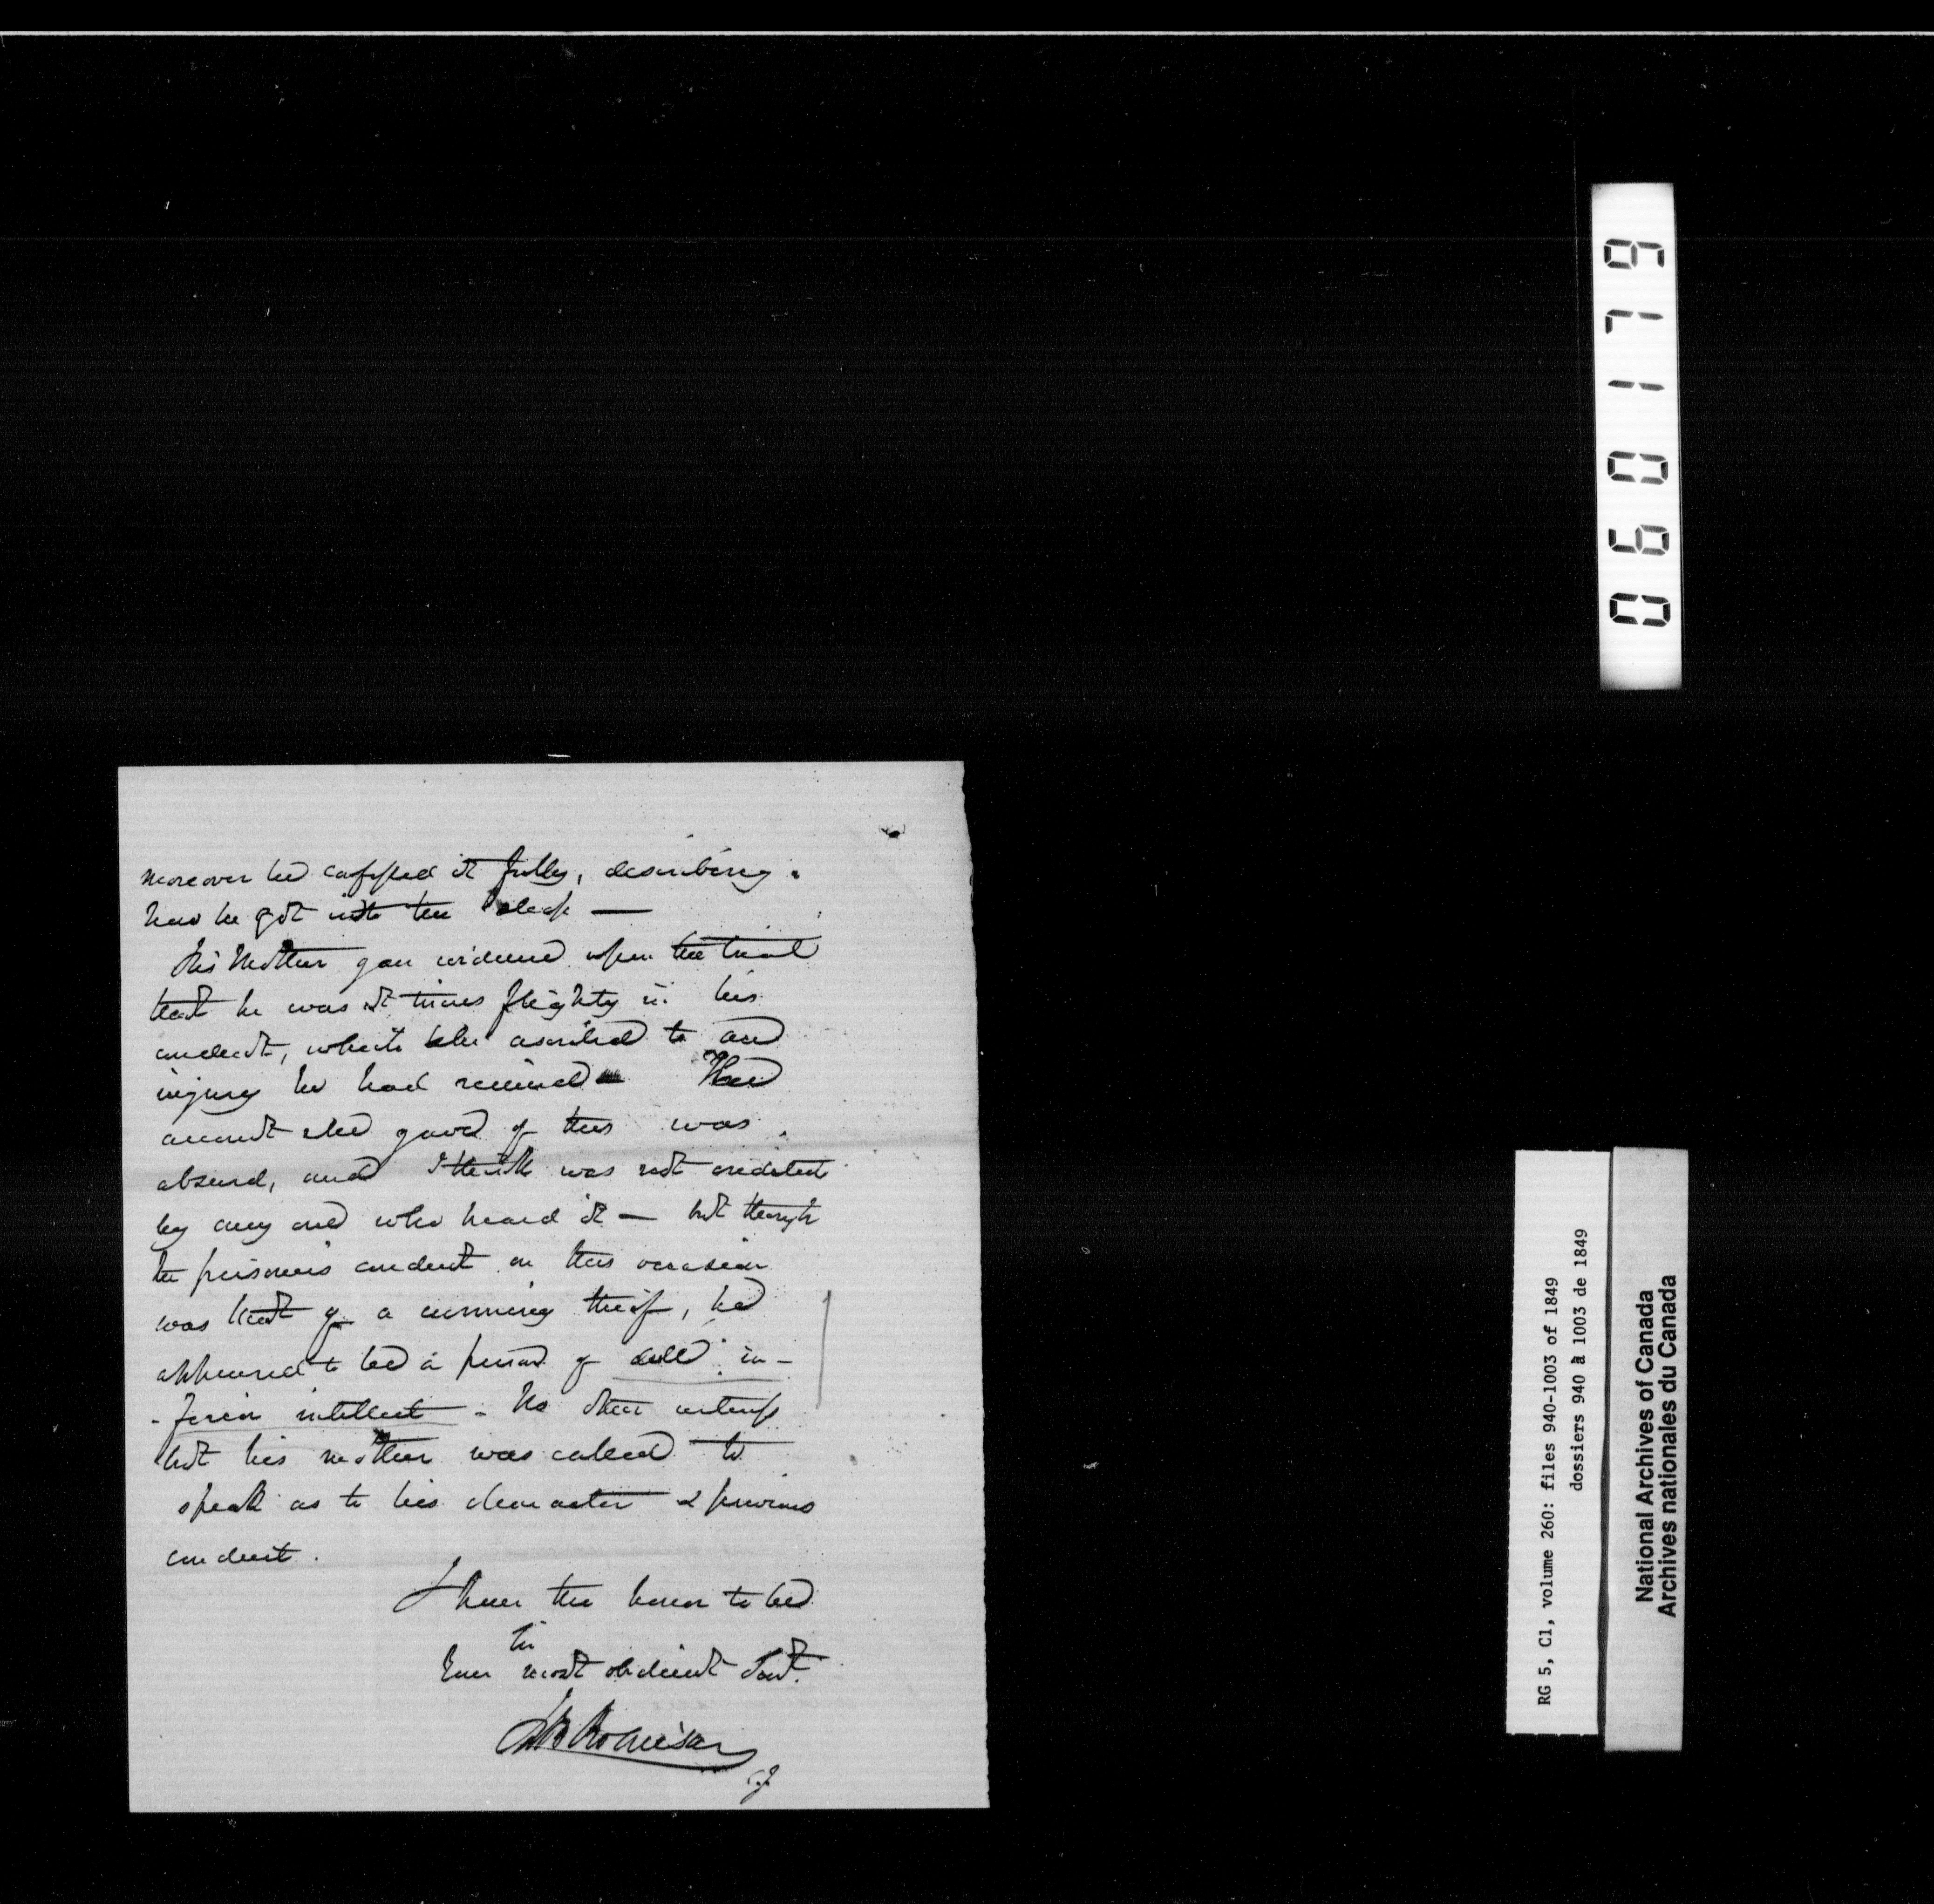 moreover he confessed it fully, describing
how he got into the place —
His Mother gave evidence upon the trial
that he was at times flighty in his
conduct, which she ascribed to an
injury he had received The
account she gave of this was
absurd, and I think was not credited
by any one who heard it — but though
the prisoners conduct on this occasion
was that of a cunning thief, he
appeared to be a person of dull in-
-ferior intellect - No other witness
but his mother was called to
speak as to his character & previous
conduct.
I have the honor to be
Sir
Your most obedient Servt.
J B Robinson
CJ
060179
RG 5, C1, volume 260: files 940-1003 of 1849
dossiers 940 à 1003 de 1849
National Archives of Canada
Archives nationales du Canada